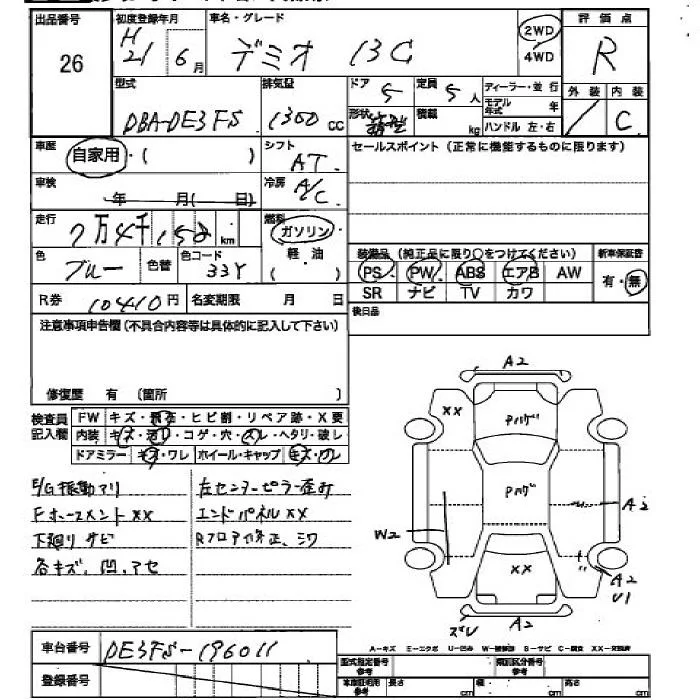 出品番号 初度登録年月 車名・グレード 2WD 評価点
26 H21 6月 デミオ 13C 4WD R
型式 排気量 ドア 5 定員 5人 ディーラー・並行 外装 内装
DBA-DE3FS 1300cc 形状 箱型 積載 kg モデル年式 年 / C
ハンドル 左・右
車歴 自家用・( ) シフト AT セールスポイント(正常に機能するものに限ります)
車検 年 月(日) 冷房 A/C
走行 7万4千152km 燃料 ガソリン
軽油
色 ブルー 色替 色コード 33Y
装備品(純正品に限り〇をつけてください) 新車保証書
PS PW ABS エアB AW 有・無
SR ナビ TV カワ
R券 10410円 名変期限 月 日 後日品
注意事項申告欄(不具合内容等は具体的に記入して下さい)
修復歴 有 (箇所 )
検査員記入欄
FW キズ・飛石・ヒビ割・リペア跡・X要
内装 キズ・汚れ・コゲ・穴・スレ・ヘタリ・破レ
ドアミラー キズ・ワレ ホイール・キャップ キズ・ワレ
E/G振動アリ 左センターピラー歪み
Fホースメント XX エンドパネル XX
下廻りサビ Rフロア修正、シワ
各キズ、凹、アセ
A2
XX
Pハゲ
Pハゲ
A2
W2
XX
A2
U1
ズレ A2
A-キズ E-エクボ U-凹み W-補修跡 S-サビ C-腐食
車台番号 DE3FS-196011
登録番号
型式指定番号 参考 類別区分番号 参考
車庫証明用 参考 長さ cm 幅 cm 高さ cm